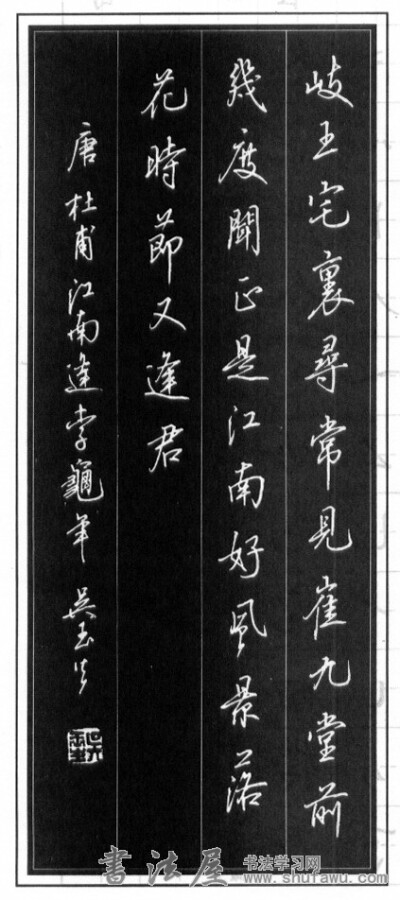 岐王宅裏尋常見崔九堂前
幾度聞正是江南好風景落
花時節又逢君
唐杜甫江南逢李龜年 吳玉生
書法屋 书法学习网
www.shufawu.com